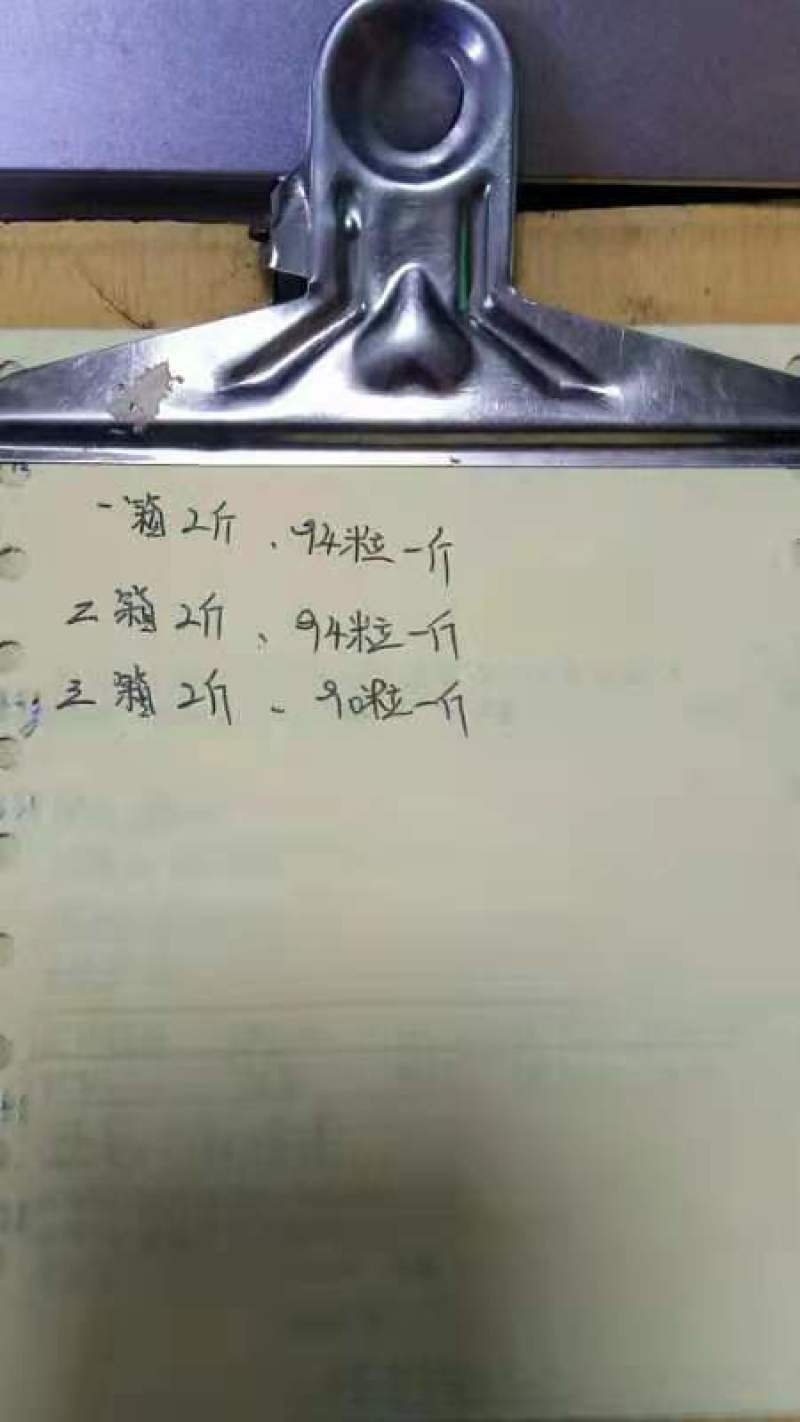 一箱2斤、94粒一斤
二箱2斤、94粒一斤
三箱2斤、90粒一斤